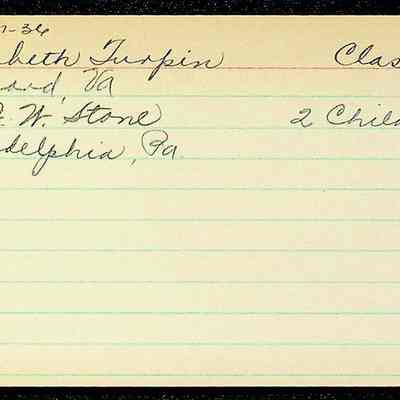 -36
beth Turpin Clas
ord, Va
W. Stone 2 Chil
delphia, Pa.